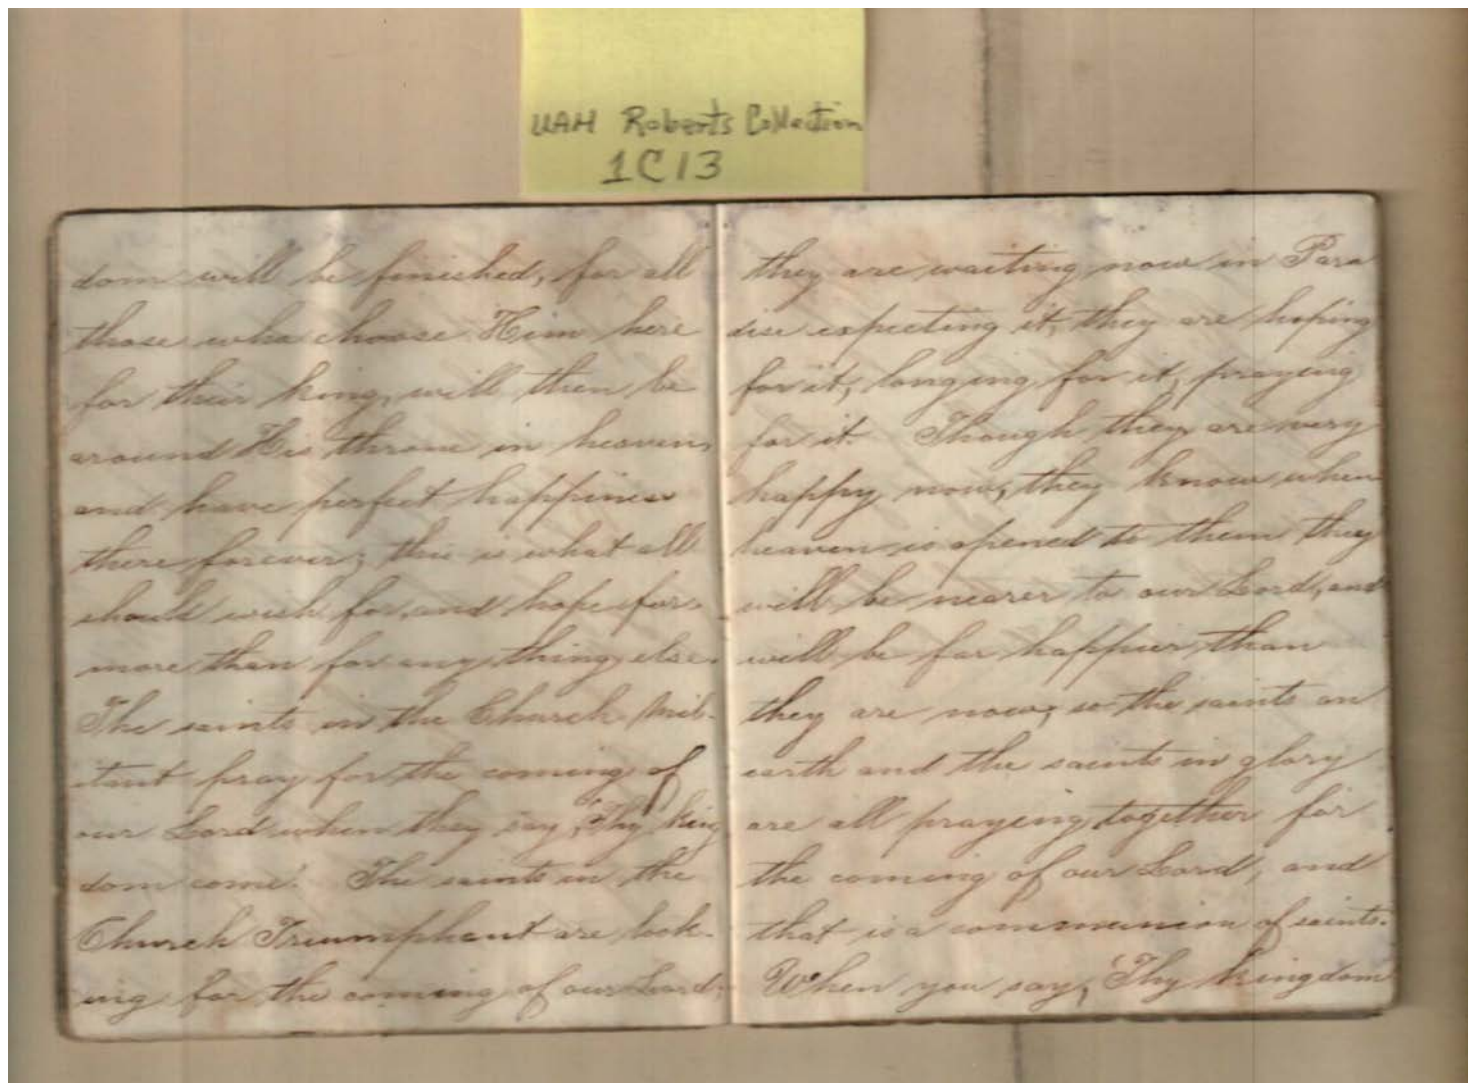 UAH Roberts Collection
1C13
dom will be finished, for all
those who choose Him here
for their king, will then be
around His throne in heaven,
and have perfect happiness
there forever; this is what all
should wish for, and hope for
more than for any thing else.
The saints in the Church Mil-
itant pray for the coming of
our Lord when they say, "Thy king
dom come". The saints in the
Church Triumphant are look-
ing for the coming of our Lord;
they are waiting now in Para
dise expecting it, they are hoping
for it, longing for it, praying
for it. Though they are very
happy now, they know when
heaven is opened to them they
will be nearer to our Lord, and
will be far happier than
they are now; so the saints on
earth and the saints in glory
are all praying together for
the coming of our Lord, and
that is a communion of saints.
When you say, "Thy kingdom